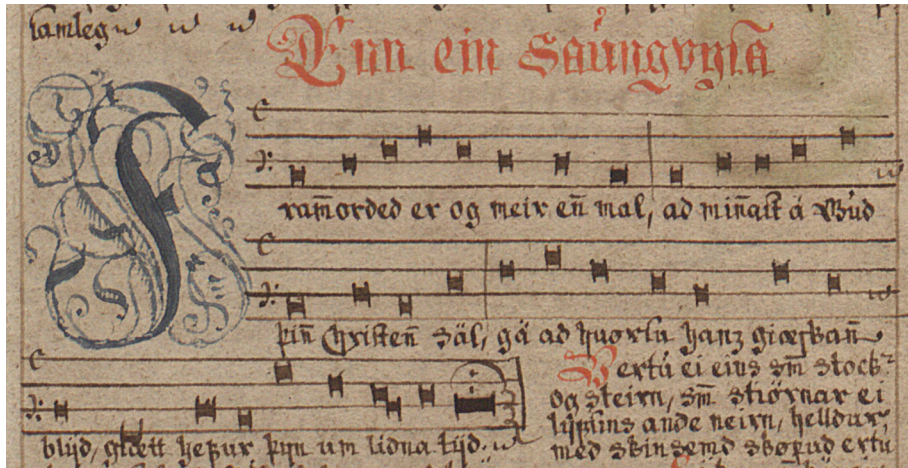 samleg
Enn ein Saungvysa
Fram̄orded er og meir en̄ mal, ad min̄ast á Gud
þin̄ Christen̄ Säl, gä ad huorsu hanz giæskan̄
blijd, glætt hefur þijn um lidna tijd.
Vertu ei eins sm̄ stock
og steirn, sm̄ stiörnar ei
lijfsins ande neirn, helldur,
med skinsemd skøpud ertu